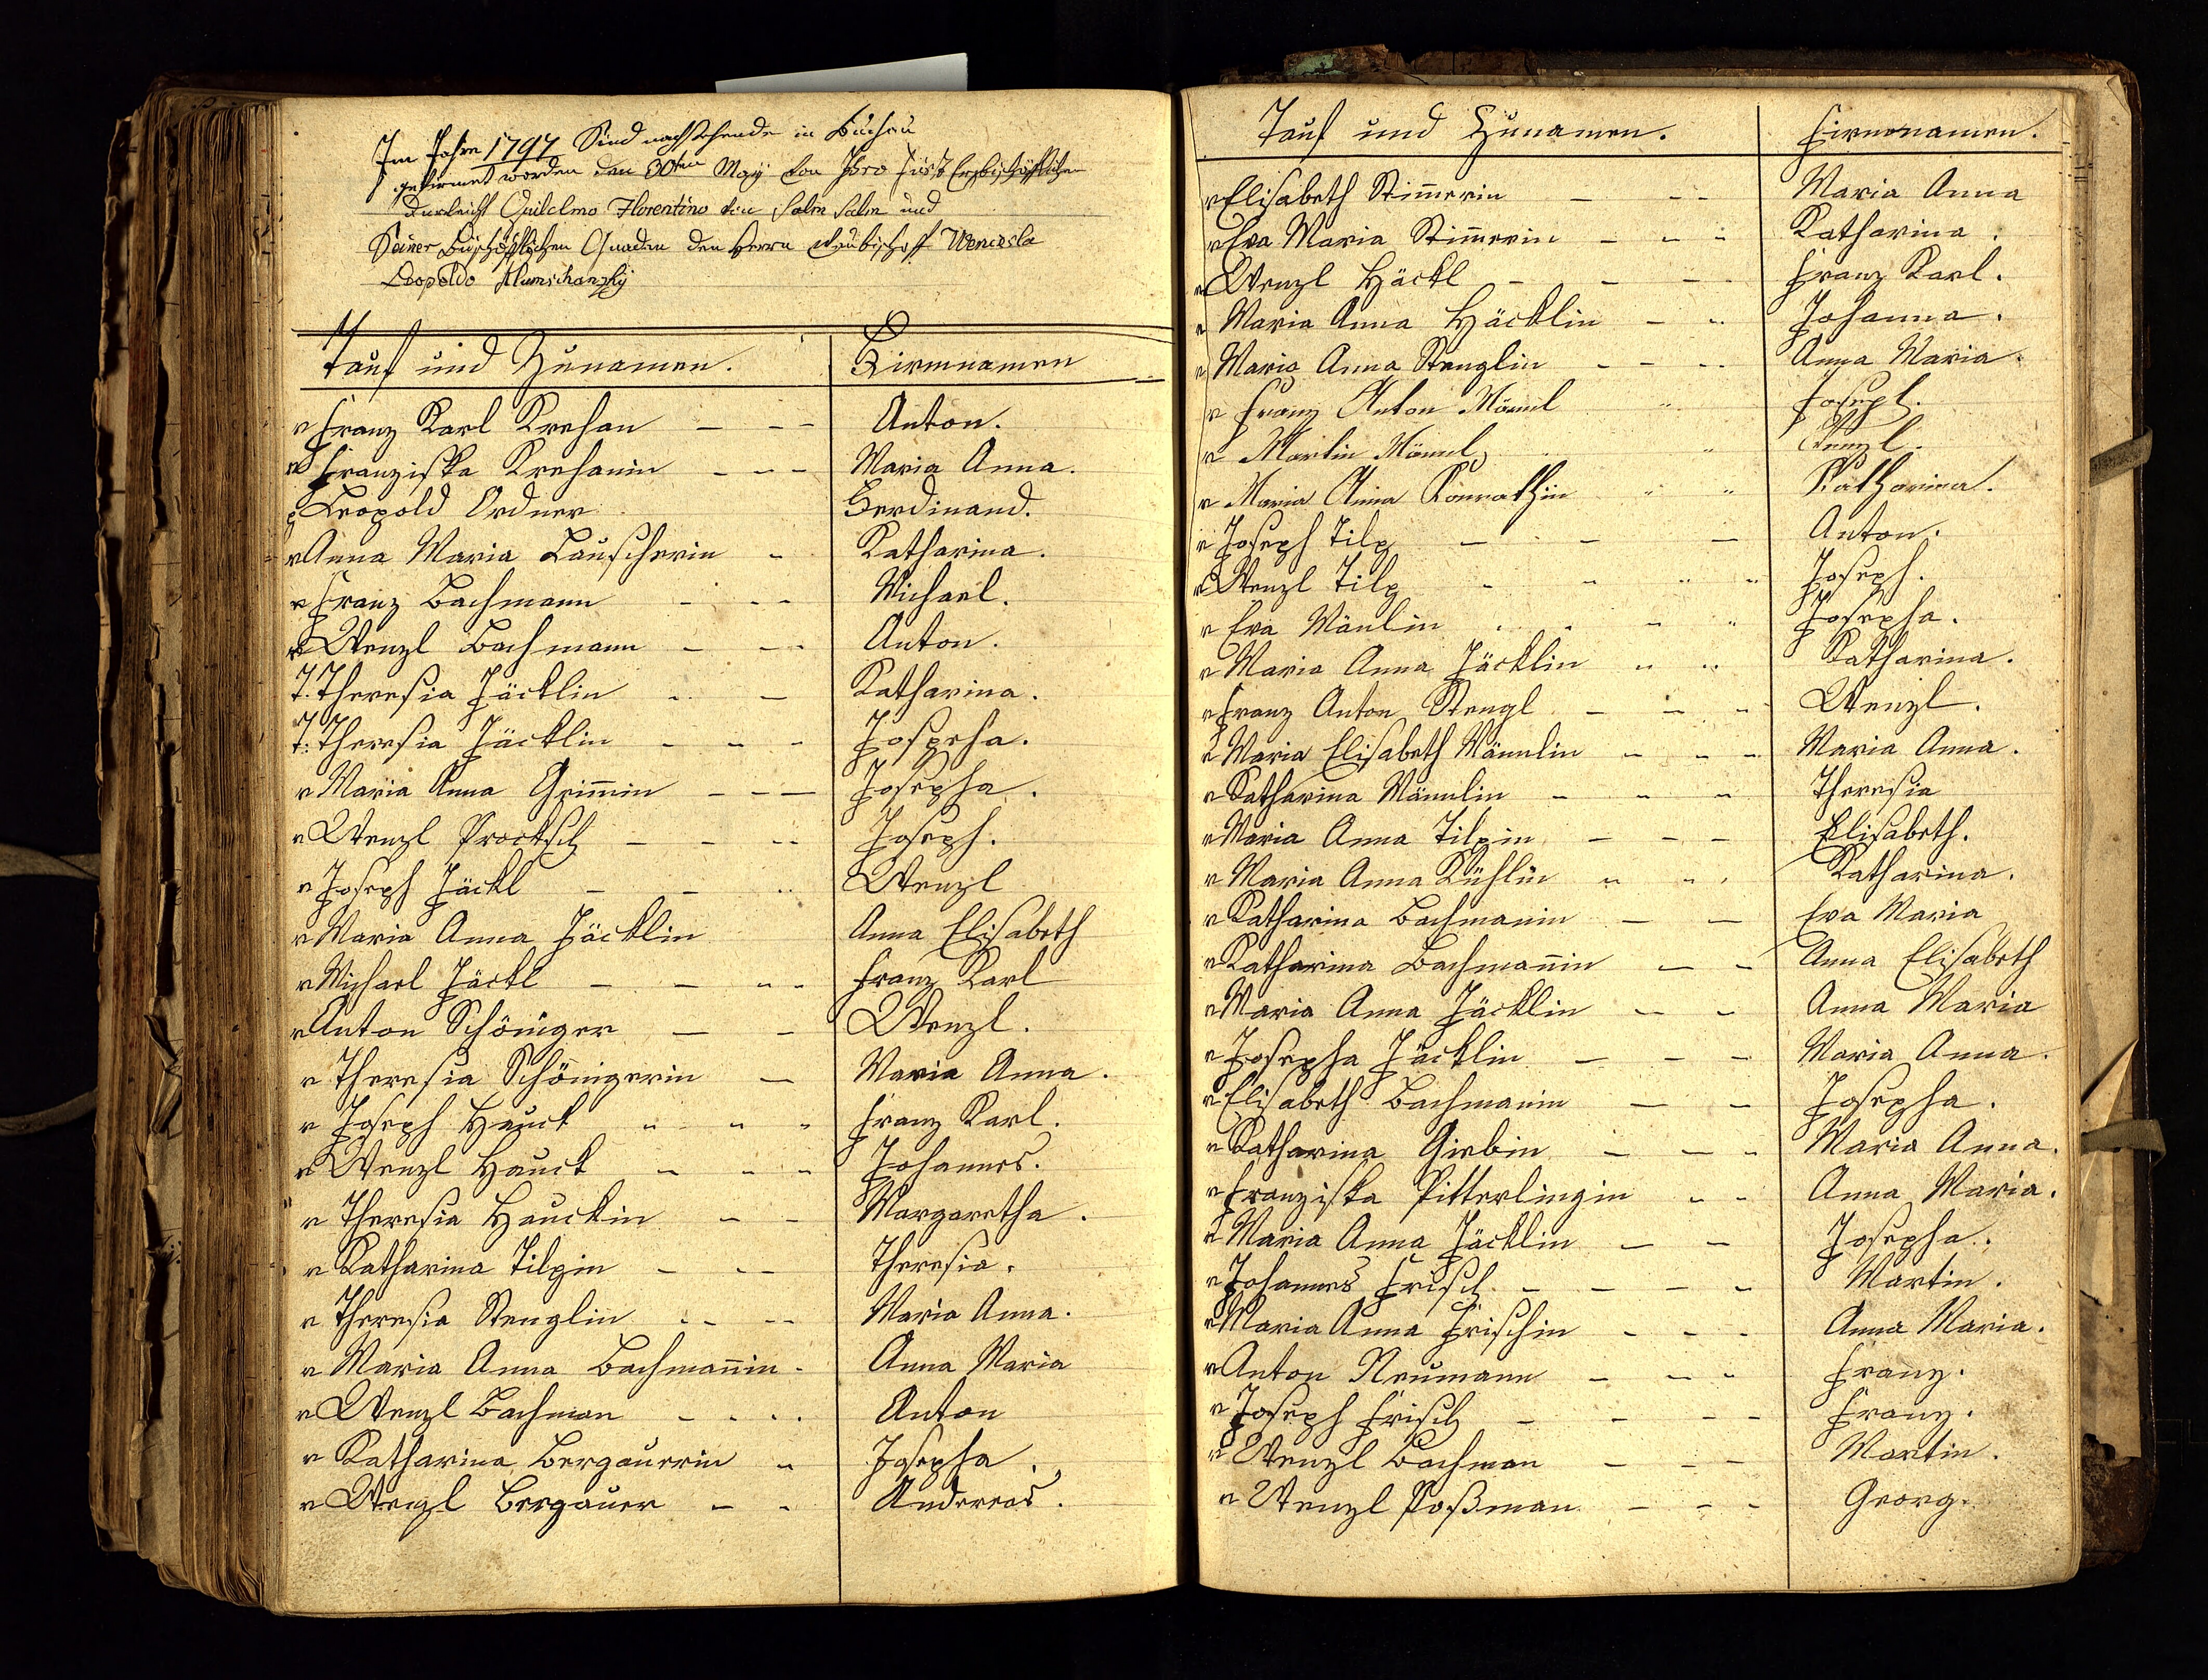 Im Jahre 1797 Sind nachstehende in Buchau
gefirmet worden den 30ten May von Ihro Fürst Erzbischöfflichen
Durleicht Guilelmo Florentino von Salm Salm und
Seiner Bischöfflichen Gnaden den Herrn Weubischoff Wencesla
Leopoldo Klumschanzky
Tauf und Zunamen. Firmnamen
Franz Karl Krehan Anton.
Franziska Krehanin Maria Anna.
Leopold Ordner Ferdinand.
Anna Maria Lauscherin Katharina.
Franz Bachmann Michael.
Wenzl Bachmann Anton.
T. Theresia Jäcklin Katharina.
T: Theresia Jäcklin Jospeha.
Maria Anna Grim̄in Josepha.
Wenzl Procksch Joseph.
Joseph Jäckl Wenzl
Maria Anna Jäcklin Anna Elisabeth
Michael Jäckl Franz Karl
Anton Schöniger Wenzl.
Theresia Schönigerin Maria Anna.
Joseph Hauck Franz Karl.
Wenzl Hauck Johannes.
Theresia Hauckin Margaretha.
Katharina Tilpin Theresia.
Theresia Stenglin Maria Anna.
Maria Anna Bachman̄in Anna Maria
Wenzl Bachman Anton
Katharina Bergauerin Josepha.
Wenzl Bergauer Andereas.
Tauf und Zunamen. Firmnamen.
Elisabeth Stim̄erin Maria Anna
Eva Maria Stim̄erin Katharina.
Wenzl Häckl Franz Karl.
Maria Anna Häcklin Johanna.
Maria Anna Stenglin Anna Maria.
Franz Anton Männl Joseph.
Martin Männl Wenzl.
Maria Anna Konrathin Katharina.
Joseph Tilp Anton.
Wenzl Tilp Joseph.
Eva Mänlin Josepha.
Maria Anna Jäcklin Katharina.
Franz Anton Stengl Wenzl.
Maria Elisabeth Männlin Maria Anna.
Katharina Männlin Theresia
Maria Anna Tilpin Elisabeth.
Maria Anna Kühlin Katharina.
Katharina Bachmanin Eva Maria
Katharina Bachman̄in Anna Elisabeth
Maria Anna Jäcklin Anna Maria
Josepha Jäcklin Maria Anna.
Elisabeth Bachmanin Josepha.
Katharina Girbin Maria Anna.
Franziska Pitterlingin Anna Maria.
Maria Anna Jäcklin Josepha.
Johannes Frisch Martin.
Maria Anna Frischin Anna Maria.
Anton Neumann Franz.
Joseph Frisch Franz.
Wenzl Bachman Martin.
Wenzl Poßman Georg.